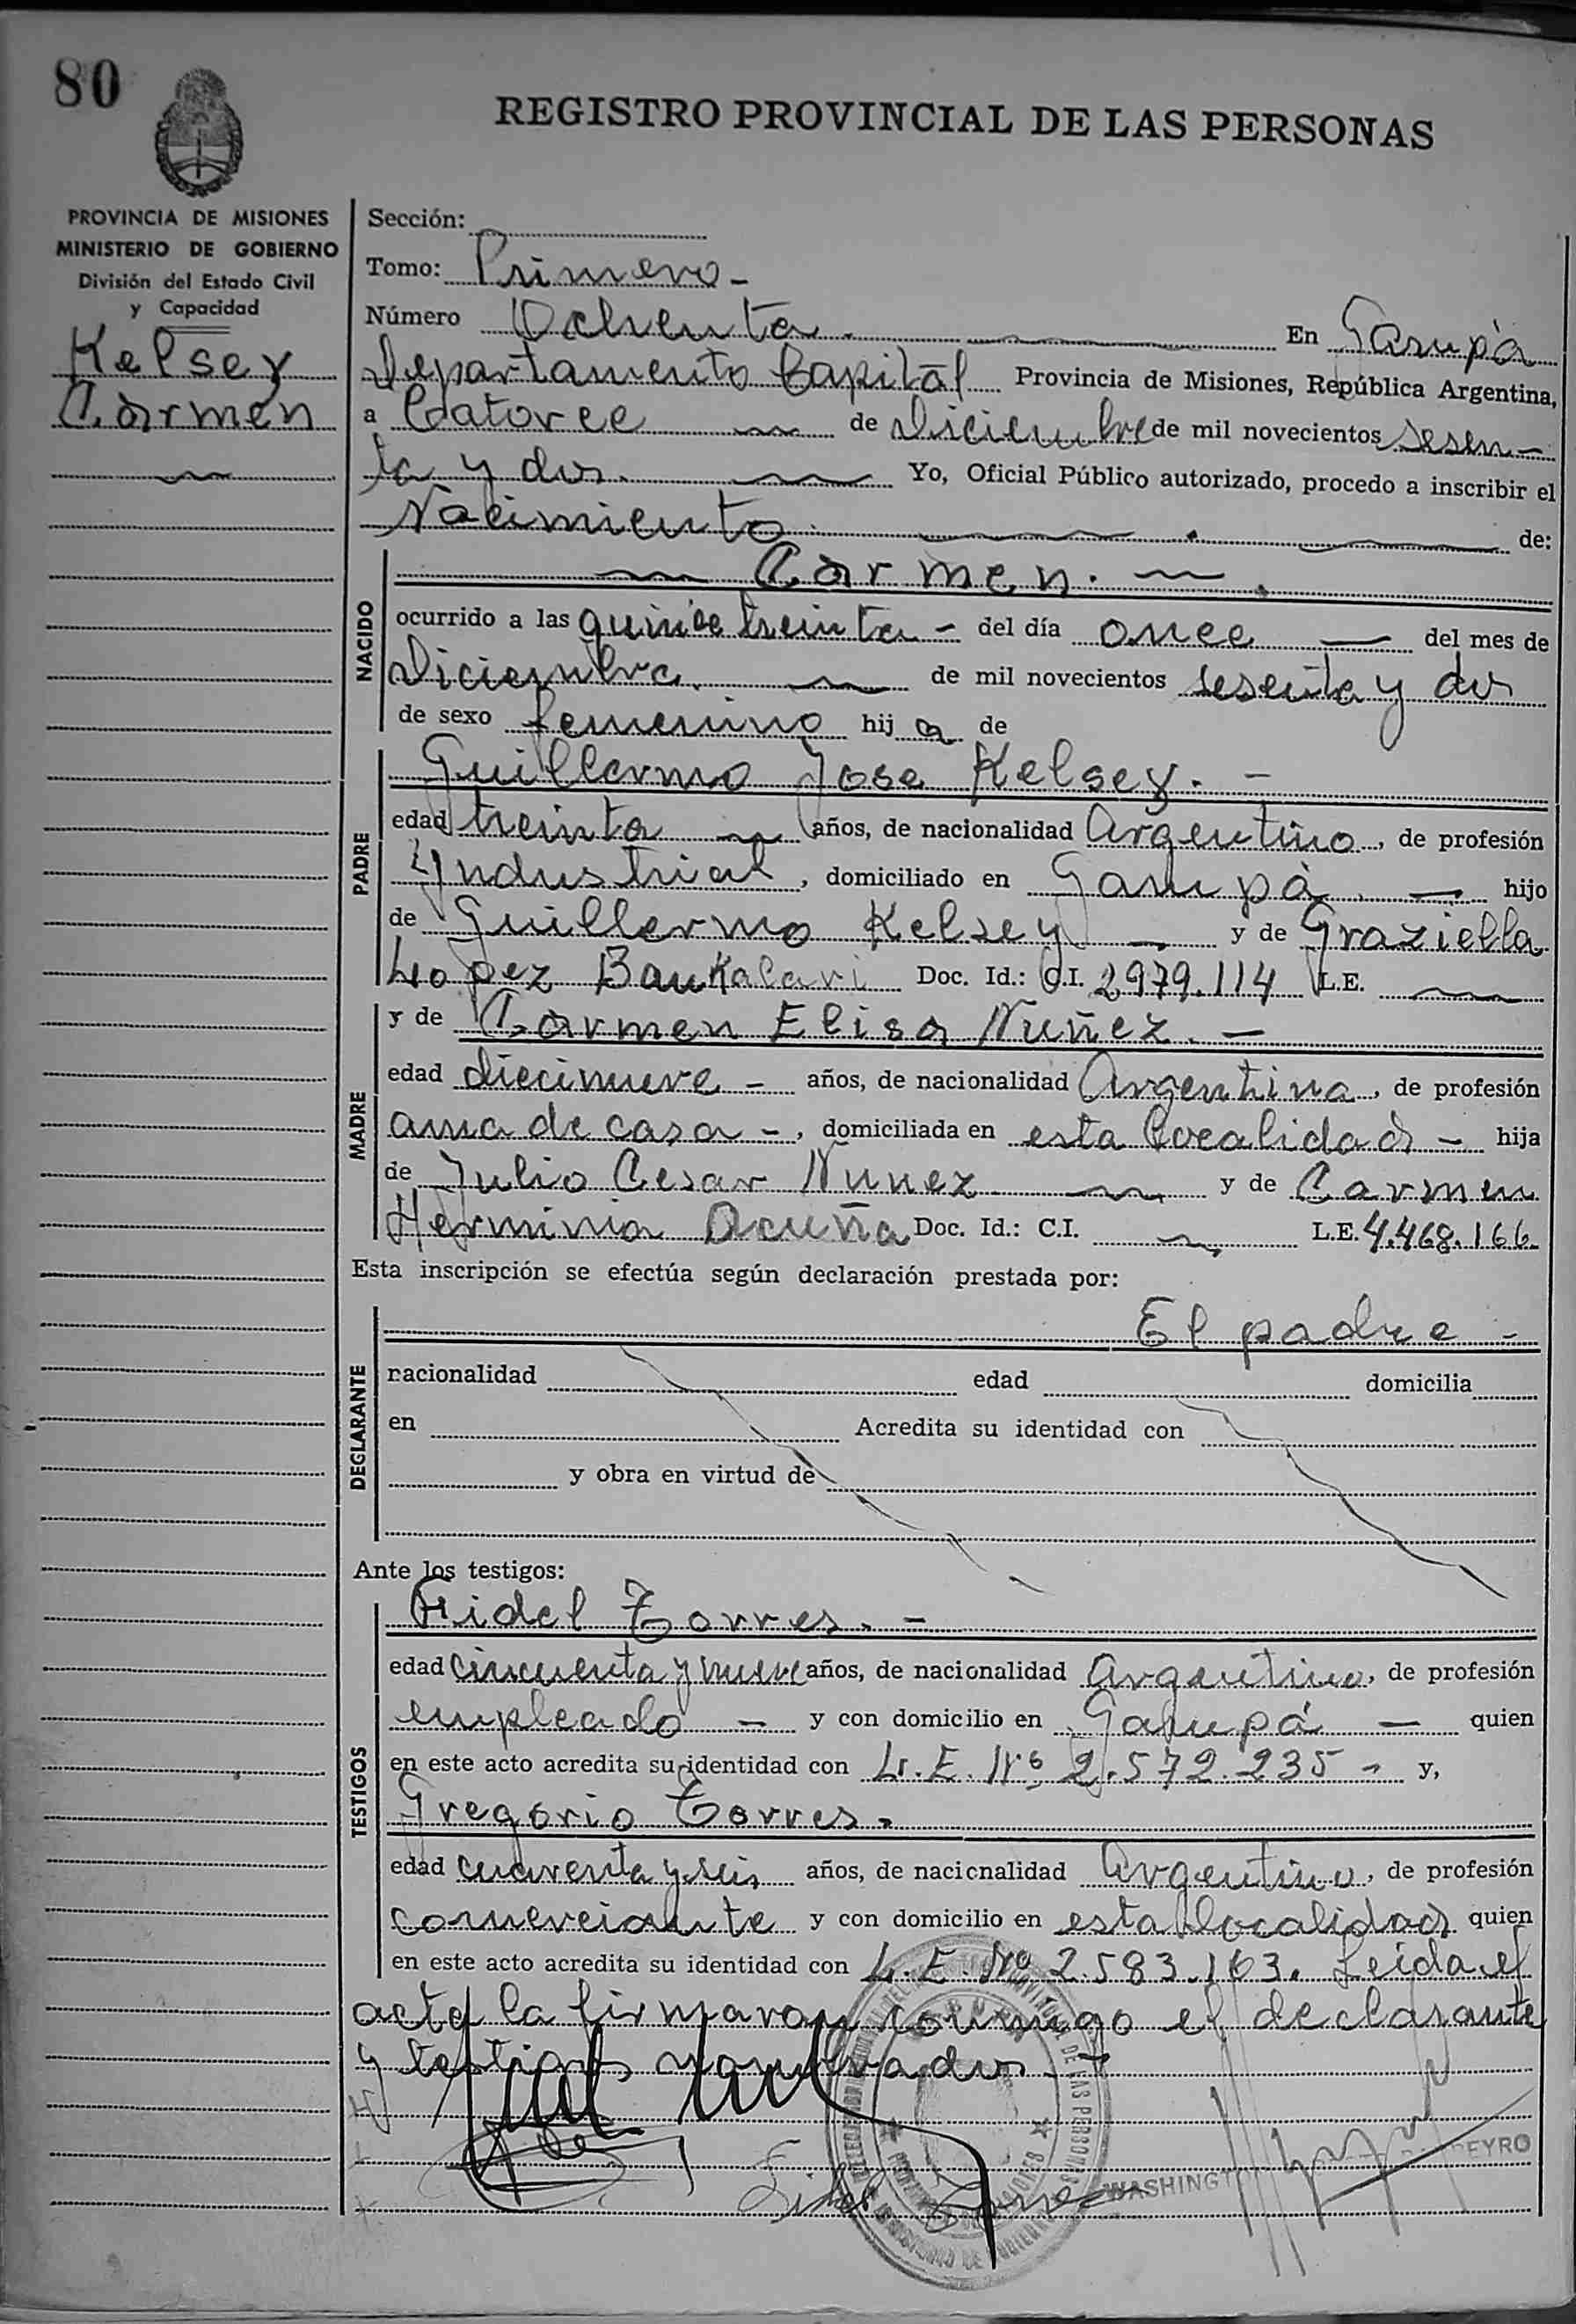 80
REGISTRO PROVINCIAL DE LAS PERSONAS
PROVINCIA DE MISIONES
MINISTERIO DE GOBIERNO
División del Estado Civil
y Capacidad
Kelsey
Carmen
Sección:
Tomo: Primero -
Número Ochenta. En Garupá
Departamento Capital Provincia de Misiones, República Argentina,
a Catorce de Diciembre de mil novecientos sesen-
ta y dos. Yo, Oficial Público autorizado, procedo a inscribir el
Nacimiento de:
NACIDO
Carmen.
ocurrido a las quince treinta - del día once del mes de
Diciembre. de mil novecientos sesenta y dos
de sexo femenino hija de
PADRE
Guillermo Jose Kelsey. -
edad treinta años, de nacionalidad Argentino, de profesión
Industrial, domiciliado en Garupá. hijo
de Guillermo Kelsey y de Graziella
Lopez Doc. Id.: C.I. 2979.114 L.E.
MADRE
y de Carmen Elisa Nuñez. -
edad diecinueve - años, de nacionalidad Argentina, de profesión
ama de casa -, domiciliada en esta localidad - hija
de Julio Cesar Nunez y de Carmen
Herminia Acuña Doc. Id.: C.I. L.E. 4.468.166
Esta inscripción se efectúa según declaración prestada por:
DECLARANTE
El padre -
nacionalidad edad domicilia
en Acredita su identidad con
y obra en virtud de
Ante los testigos:
TESTIGOS
Fidel Torres. -
edad cincuenta y nueve años, de nacionalidad Argentino, de profesión
empleado - y con domicilio en Garupá - quien
en este acto acredita su identidad con L.E. Nº 2.572.235 - y,
Gregorio Torres.
edad cuarenta y seis años, de nacionalidad Argentino, de profesión
comerciante y con domicilio en esta localidad quien
en este acto acredita su identidad con L.E. Nº 2.583.163. Leida el
acta la firmaron conmigo el declarante
y testigos nombrados. -
Fidel Torres
WASHINGTON